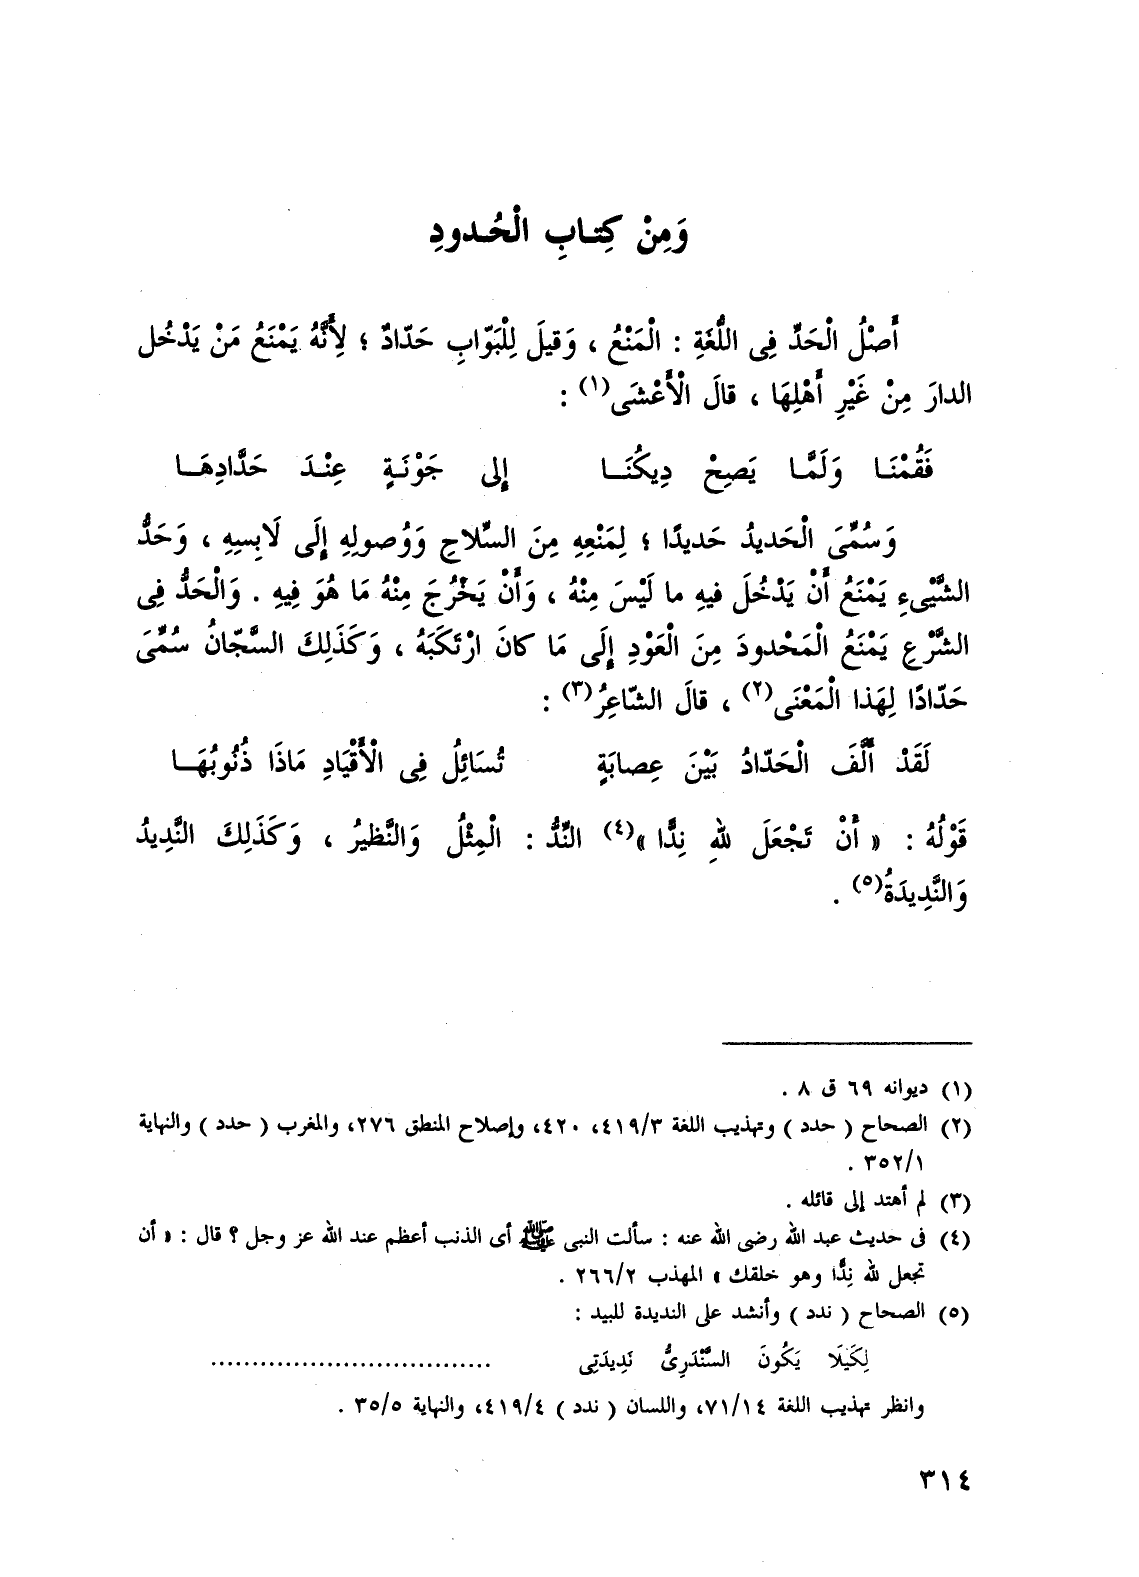 وَمِنْ كِتـابِ الْحُـدودِ
أَصْلُ الْحَدِّ فِى اللُّغَةِ : الْمَنْعُ ، وَقيلَ لِلْبَوّابِ حَدّادٌ ؛ لِأَنَّهُ يَمْنَعُ مَنْ يَدْخُل
الدارَ مِنْ غَيْرِ أَهْلِهَا ، قالَ الْأَعْشَى(١) :
فَقُمْنَـا وَلَمَّـا يَصِحْ دِيكُنَــا إِلى جَوْنَـةٍ عِنْـدَ حَدَّادِهَــا
وَسُمِّىَ الْحَديدُ حَديدًا ؛ لِمَنْعِهِ مِنَ السِّلاحِ وَوُصولِهِ إِلَى لَابِسِهِ ، وَحَدُّ
الشَّيْىءِ يَمْنَعُ أَنْ يَدْخُلَ فيهِ ما لَيْسَ مِنْهُ ، وَأَنْ يَخْرُجَ مِنْهُ مَا هُوَ فِيهِ . وَالْحَدُّ فِى
الشَّرْعِ يَمْنَعُ الْمَحْدودَ مِنَ الْعَوْدِ إِلَى مَا كانَ ارْتَكَبَهُ ، وَكَذَلِكَ السَّجّانُ سُمِّىَ
حَدّادًا لِهَذا الْمَعْنَى(٢) ، قالَ الشّاعِرُ(٣) :
لَقَدْ أَلَّفَ الْحَدّادُ بَيْنَ عِصابَةٍ تُسَائِلُ فِى الْأَقْيَادِ مَاذَا ذُنُوبُهَــا
قَوْلُهُ : « أَنْ تَجْعَلَ لِلّهِ نِدًّا »(٤) النِّدُّ : الْمِثْلُ وَالنَّظيرُ ، وَكَذَلِكَ النَّدِيدُ
وَالنَّدِيدَةُ(٥) .
(١) ديوانه ٦٩ ق ٨ .
(٢) الصحاح ( حدد ) وتهذيب اللغة ٤١٩/٣، ٤٢٠، وإصلاح المنطق ٢٧٦، والمغرب ( حدد ) والنهاية
٣٥٢/١ .
(٣) لم أهتد إلى قائله .
(٤) فى حديث عبد الله رضى الله عنه : سألت النبى ﷺ أى الذنب أعظم عند الله عز وجل ؟ قال : « أن
تجعل لله نِدًّا وهو خلقك » المهذب ٢٦٦/٢ .
(٥) الصحاح ( ندد ) وأنشد على النديدة للبيد :
لِكَيلَا يَكُونَ السَّنْدَرِىُّ نَدِيدَتِى ..................................
وانظر تهذيب اللغة ٧١/١٤، واللسان ( ندد ) ٤١٩/٤، والنهاية ٣٥/٥ .
٣١٤